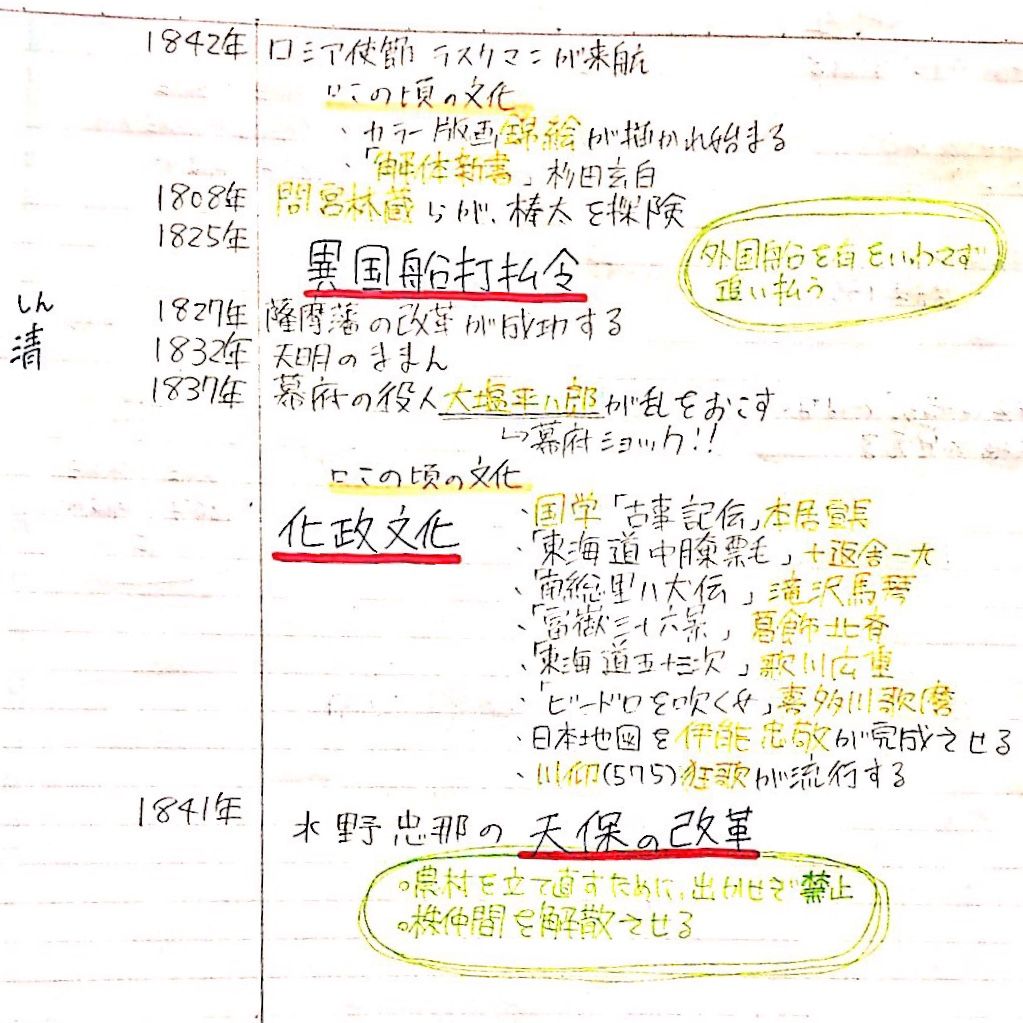 1842年 ロシア使節 ラスクマンが来航
□この頃の文化
・カラー版画錦絵が描かれ始まる
・「解体新書」杉田玄白
1808年 間宮林蔵らが、樺太を探険
1825年
異国船打払令
外国船を有をいわさず
追い払う
しん
清
1827年 薩摩藩の改革が成功する
1832年 天明のききん
1837年 幕府の役人大塩平八郎が乱をおこす
↳幕府ショック!!
□この頃の文化
化政文化
・国学「古事記伝」本居宣長
・「東海道中膝栗毛」十返舎一九
・「南総里八犬伝」滝沢馬琴
・「富嶽三十六景」葛飾北斉
・「東海道五十三次」歌川広重
・「ビードロを吹く女」喜多川歌麿
・日本地図を伊能忠敬が完成させる
・川柳(575)狂歌が流行する
1841年
水野忠邦の天保の改革
○農村を立て直すために、出かせぎ禁止
○株仲間を解散させる